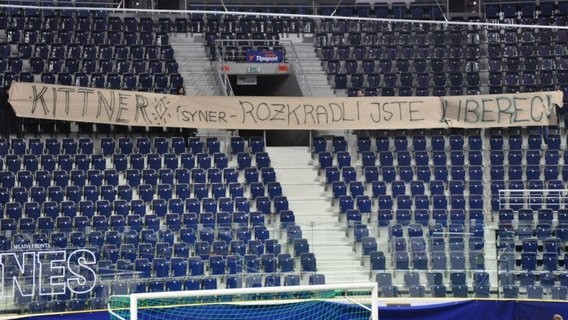 Tipsport
KITTNER SYNER - ROZKRADLI JSTE LIBEREC!
MLADÁ FRONTA
DNES